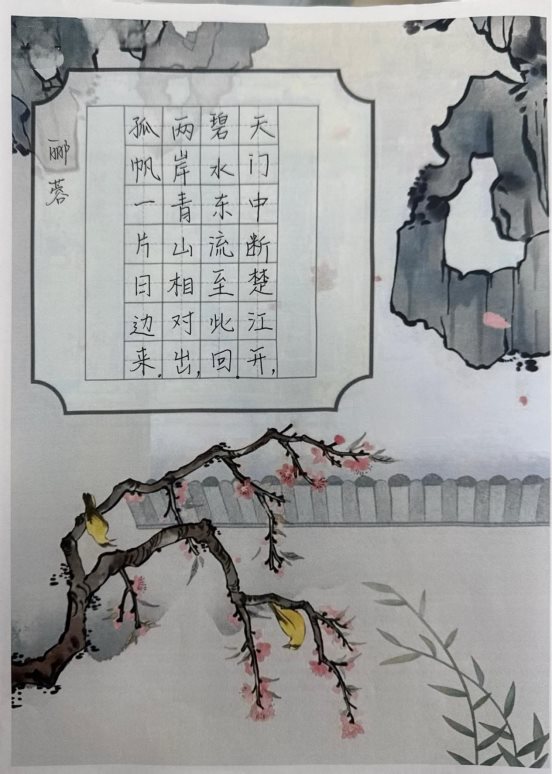 天门中断楚江开，
碧水东流至此回.
两岸青山相对出，
孤帆一片日边来.
郦蓉